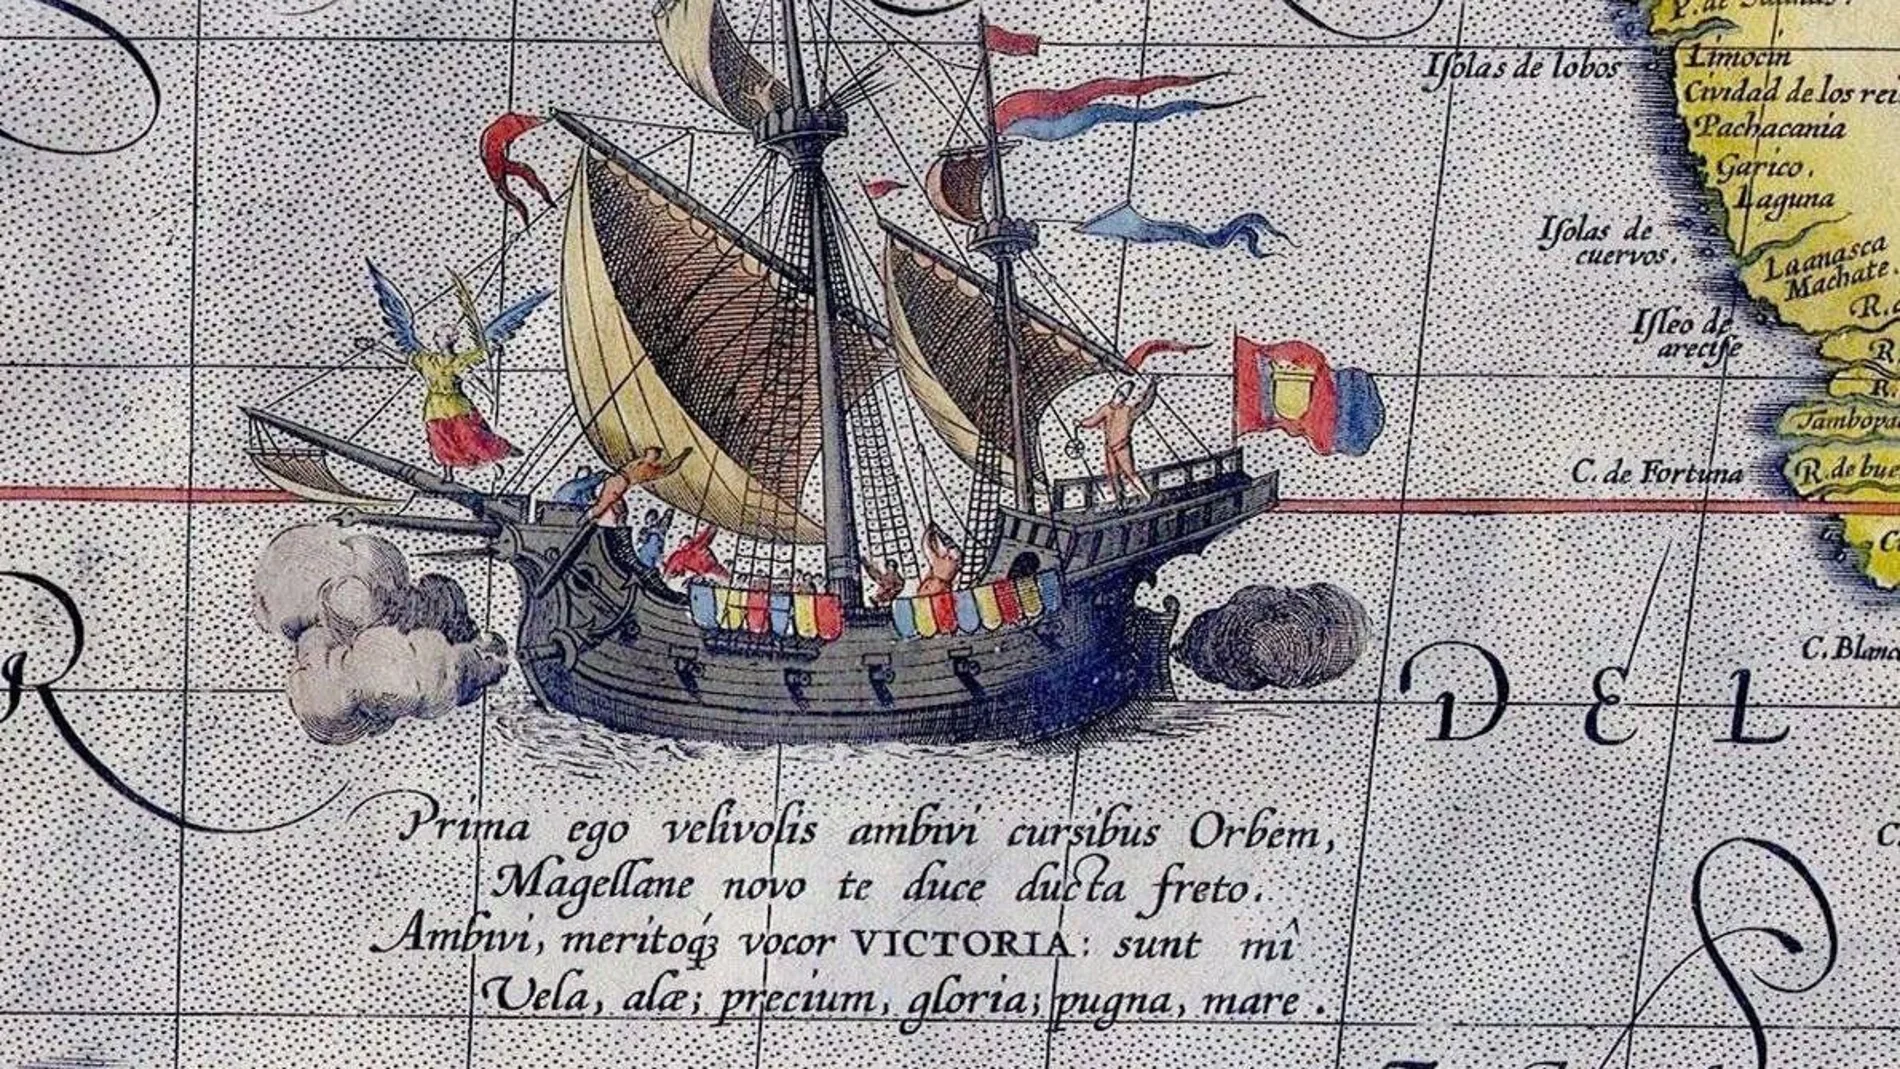 Y. de
Limocin
Isolas de lobos
Cividad de los rei
Pachacania
Garico.
Laguna
Isolas de
cuervos.
Laanasca
Machate
R.
Isleo de
arecife
R
R.
Tambopa
C. de Fortuna
R. de bue
C
C. Blanc
R
D E L
Prima ego velivolis ambivi cursibus Orbem,
Magellane novo te duce ducta freto.
Ambivi, meritoq́ꝫ vocor VICTORIA: sunt mî
Vela, alæ; precium, gloria; pugna, mare.
C.
S